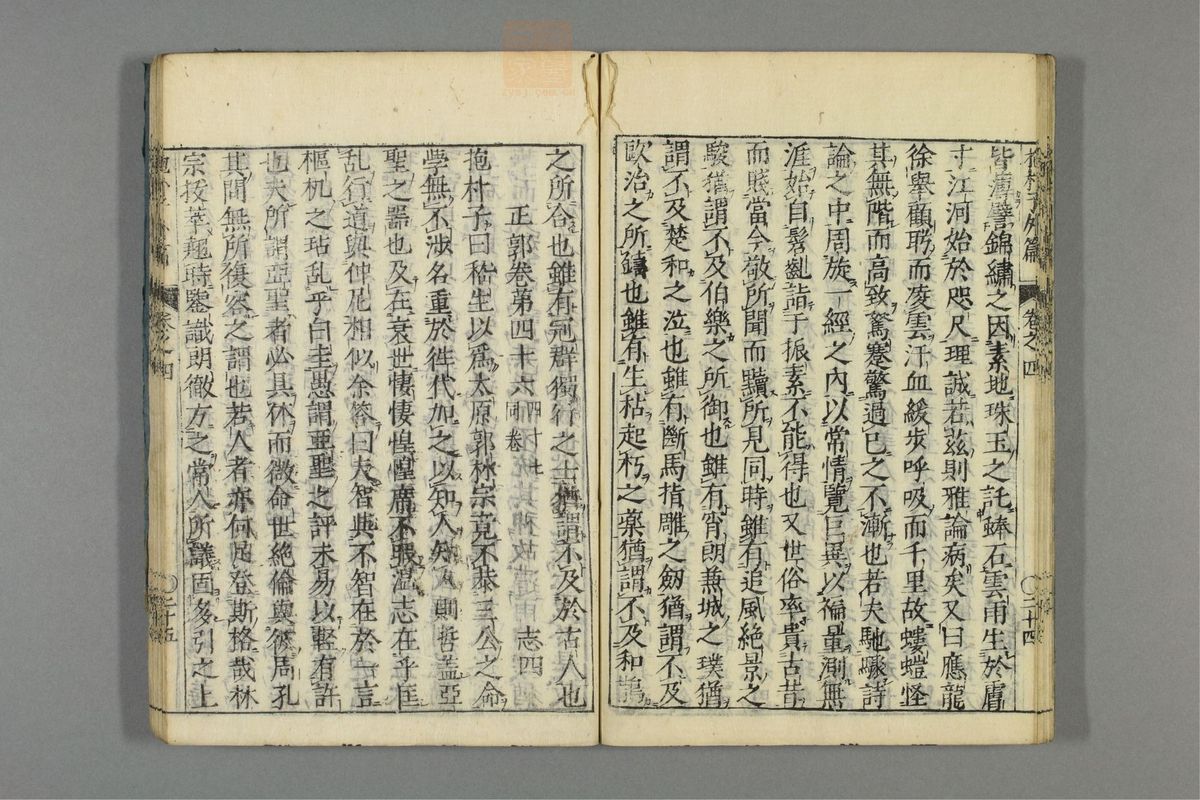 抱朴子外篇 卷之四 ○二十四
皆薄礕錦繡之因素地珠玉之託蜯石雲雨生於膚
寸江河始於咫尺理誠若茲則雅論病矣又曰應龍
徐舉顧眄而凌雲汗血緩步呼吸而千里故螻螘怪
其無階而高致駑蹇驚過已之不漸也若夫馳驟詩
論之中周旋一經之內以常情覽巨異以褊量測無
涯始自髫齓詣于振素不能得也又世俗率貴古昔
而賤當今敬所聞而黷所見同時雖有追風絕景之
駿猶謂不及伯樂之所御也雖有宵朗兼城之璞猶
謂不及楚和之泣也雖有斷馬指雕之劒猶謂不及
歐冶之所鑄也雖有生枯起朽之藥猶謂不及和鵲
之所合也雖有冠群獨行之士猶謂不及於古人也
正郭卷第四十六 四十七同卷 志四
抱朴子曰嵇生以爲太原郭林宗竟不恭三公之命
學無不涉名重於徃代加之以知人知人則哲盖亞
聖之器也及在衰世悽悽惶惶席不暇温志在乎匡
乱行道與仲尼相似余答曰夫智與不智在於一言
樞机之玷乱乎白圭愚謂亜聖之評未易以輕有許
也夫所謂亞聖者必具体而微命世絕倫與彼周孔
其間無所復容之謂也若人者亦何足登斯格哉林
宗拔萃翹時鑒識朗徹方之常人所議固多引之上
卷之四 ○二十五